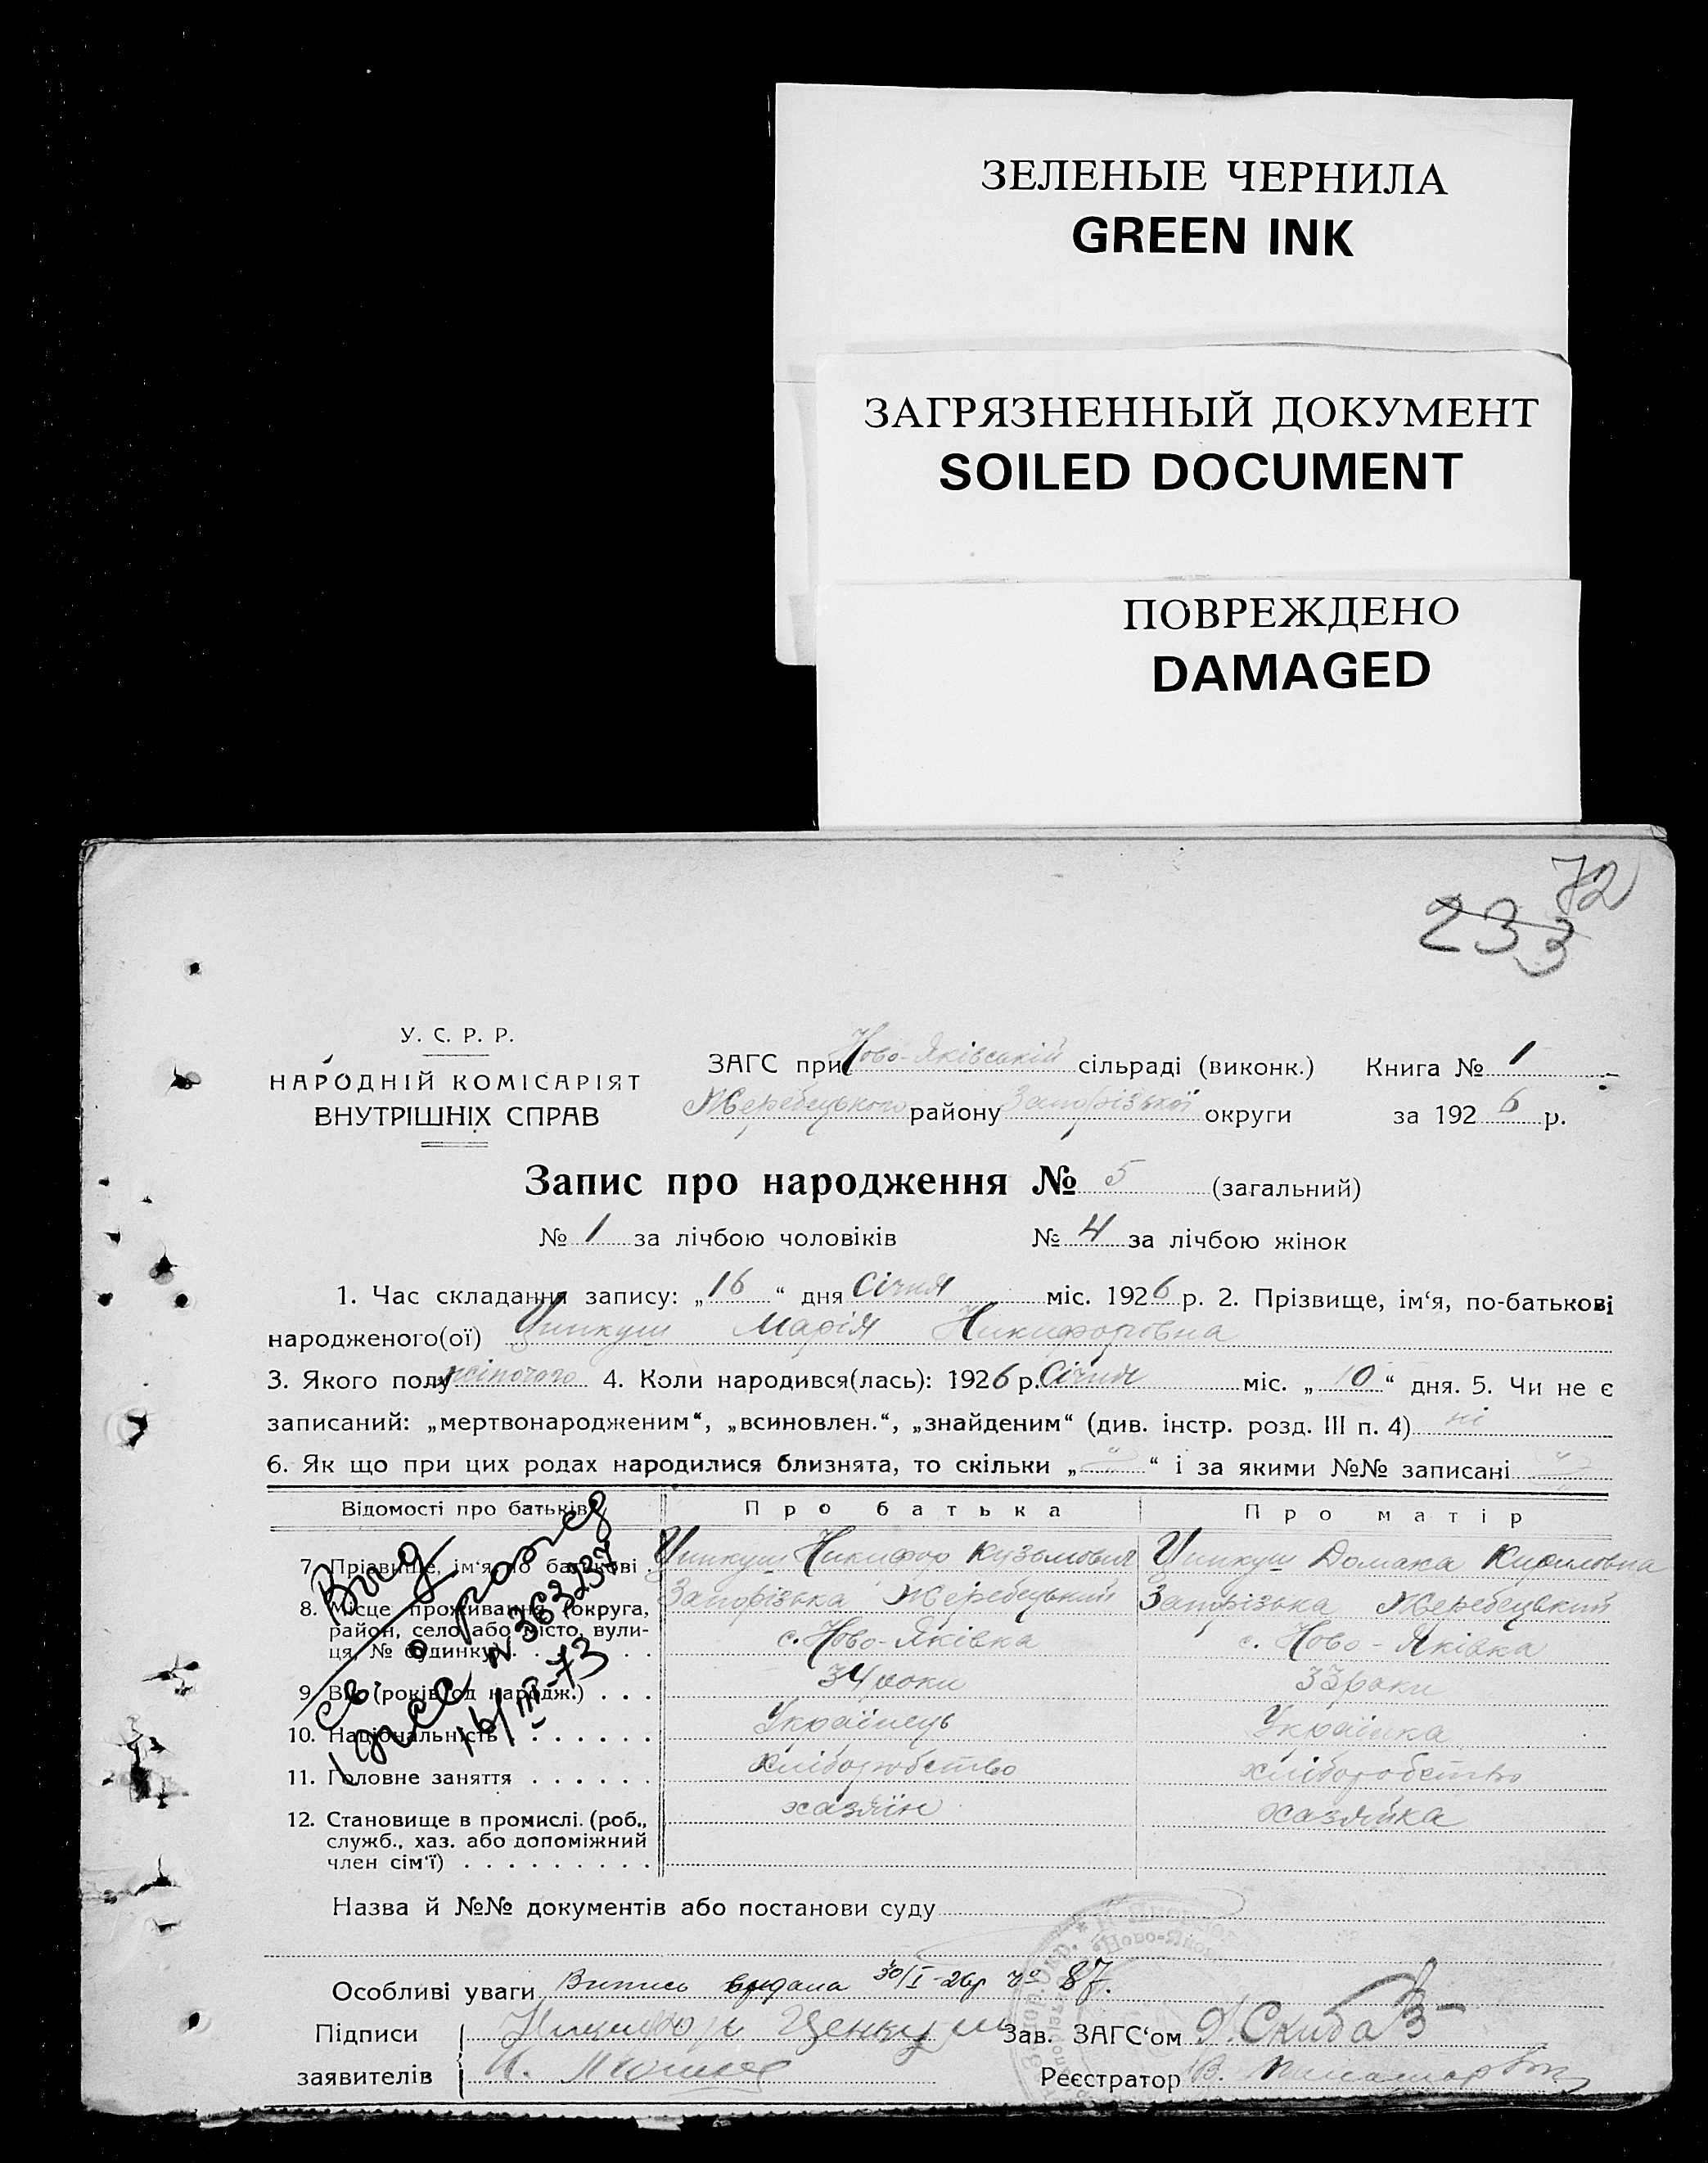 ЗЕЛЕНЫЕ ЧЕРНИЛА
GREEN INK
ЗАГРЯЗНЕННЫЙ ДОКУМЕНТ
SOILED DOCUMENT
ПОВРЕЖДЕНО
DAMAGED
72
233
У. С. Р. Р.
НАРОДНІЙ КОМІСАРІЯТ
ВНУТРІШНІХ СПРАВ
ЗАГС при Ново-Яківській сільраді (виконк.) Книга № 1
Жеребецького району Запорізької округи за 1926 р.
Запис про народження № 5 (загальний)
№ 1 за лічбою чоловіків № 4 за лічбою жінок
1. Час складання запису: „16“ дня Січня міс. 1926 р. 2. Прізвище, ім‘я, по-батькові
народженого(ої) Ципкуш Марія Никифорівна
3. Якого полу жіночого 4. Коли народився(лась): 1926 р. Січня міс. „10“ дня. 5. Чи не є
записаний: „мертвонародженим“, „всиновлен.“, „знайденим“ (див. інстр. розд. III п. 4) ні
6. Як що при цих родах народилися близнята, то скільки „ “ і за якими №№ записані
Відомості про батьків Про батька Про матір
7. Прізвище, ім‘я по батькові Ципкуш Никифор Кузьмович Ципкуш Домаха Кириловна
8. Місце проживання (округа, Запорізька Жеребецький Запорізька Жеребецький
район, село або місто, вули- с. Ново-Яківка с. Ново-Яківка
ця, № будинку)
9. Вік (років од народж.) 34 роки 33 роки
10. Національність Українець Українка
11. Головне заняття хліборобство хліборобство
12. Становище в промислі. (роб., хазяїн хазяйка
служб., хаз. або допоміжний
член сім‘ї)
Выд
св. о
N 363237
16/III-73
Назва й №№ документів або постанови суду
Особливі уваги Випись видана 30/I-26р № 87.
Підписи Зав. ЗАГС‘ом Скиба
заявителів Реєстратор В.